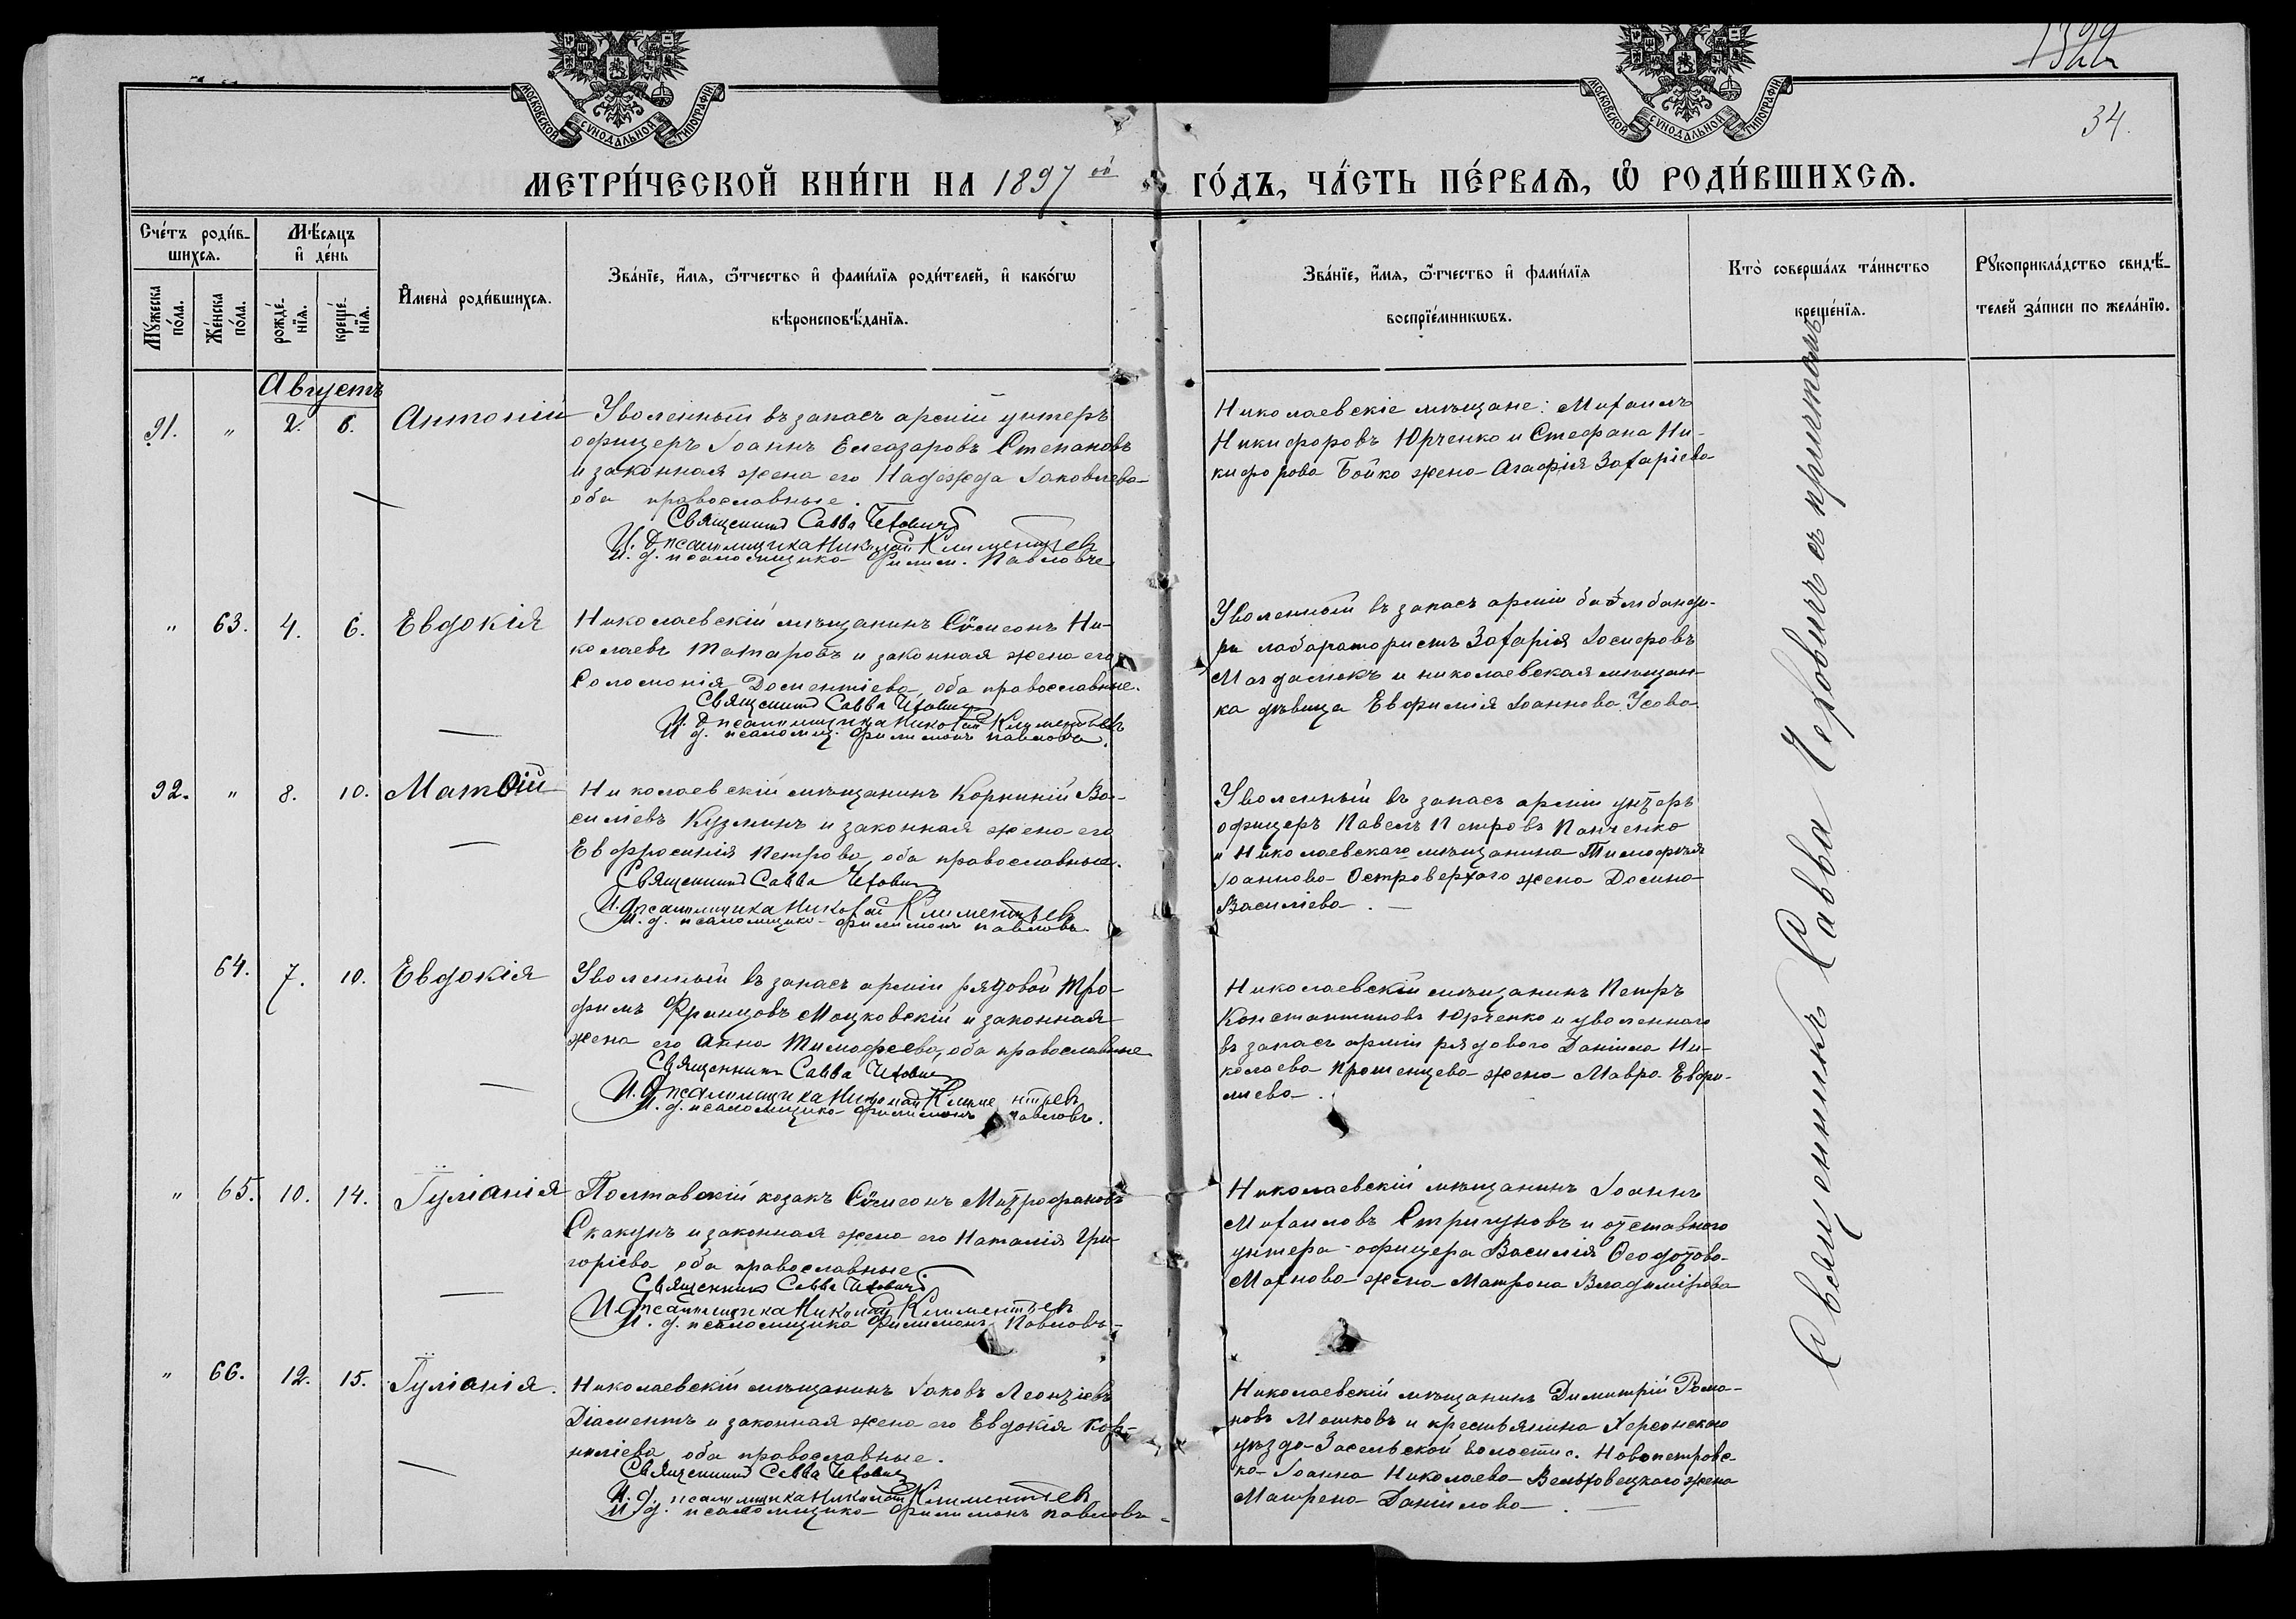 1322
34.
МОСКОВСКОЙ СѴНОДАЛЬНОЙ ТИПОГРАФІИ
МОСКОВСКОЙ СѴНОДАЛЬНОЙ ТИПОГРАФІИ
МЕТРИ́ЧЕСКОЙ КНИ́ГИ НА 1897 ой ГО́ДЪ, ЧА́СТЬ ПЕ́РВАѦ, Ѡ РОДИ́ВШИХСѦ.
Сче́тъ роди́в-
шихсѧ.
Мѣ́сѧцъ
и҆ де́нь
Мꙋ́жеска по́ла.
Же́нска по́ла.
рожде́-
нїѧ.
креще́-
нїѧ.
И҆мена̀ роди́вшихсѧ.
Зва́нїе, и҆́мѧ, ѻ҆́тчество и҆ фами́лїѧ роди́телей, и҆ како́гѡ
вѣроисповѣ́данїѧ.
Зва́нїе, и҆́мѧ, ѻ҆́тчество и҆ фами́лїѧ
воспрїе́мникѡвъ.
Кто̀ соверша́лъ та́инство
креще́нїѧ.
Рꙋкоприкла́дство свидѣ́-
телей за́писи по жела́нїю.
Августъ
91. " 2. 6. Антоній
Уволенный въ запасъ арміи унтеръ
офицеръ Іоаннъ Елеазаровъ Степановъ
и законная жена его Надежда Іаковлева
оба православные.
Священникъ Савва Чехович
И. д псаломщика Николай Климентьев
И. д. псаломщика Филим. Павловъ
Николаевскіе мѣщане: Михаилъ
Никифоровъ Юрченко и Стефана Ни-
кифорова Бойко жена Агафія Захаріева
" 63. 4. 6. Евдокія
Николаевскій мѣщанинъ Сѵмеонъ Ни-
колаевъ Татаровъ и законная жена его
Соломонія Доментіева, оба православные.
Священникъ Савва Чехович
И. д псаломщика Николай Климентьевъ
И д. псаломщ. Филимонъ Павловъ.
Уволенный въ запасъ арміи бомбанди-
ръ лабаратористъ Захарія Іосифовъ
и николаевская мѣщан-
ка дѣвица Евфимія Іоаннова Усова
92. " 8. 10. Матѳій
Николаевскій мѣщанинъ Корнилій Ва-
силіевъ Кузминъ и законная жена его
Евфросинія Петрова, оба православные.
Священникъ Савва Чехович
И. д псаломщика Николай Климентьевъ
И. д. псаломщика Филимонъ Павловъ.
Уволенный въ запасъ арміи унтеръ
офицеръ Павелъ Петровъ Панченко
и Николаевскаго мѣщанина Тимофѣя
Іоаннова Островерхаго жена Домна
Василіева.
64. 7. 10. Евдокія
Уволенный въ запасъ арміи рядовой Тро-
фимъ Францовъ Моцковскій и законная
жена его Анна Тимофеева, оба православные
Священникъ Савва Чехович
И. д псаломщика Николай Климентьевъ
И. д. псаломщика Филимонъ Павловъ.
Николаевскій мѣщанинъ Петръ
Константиновъ Юрченко и уволеннаго
въ запасъ арміи рядового Даніила Ни-
колаева Прошенцева жена Мавра Евфи-
міева.
" 65. 10. 14. Іуліанія
Полтавскій козакъ Сѵмеонъ Митрофановъ
Скакунъ и законная жена его Наталія Гри-
горіева, оба православные.
Священникъ Савва Чехович
И. д псаломщика Николай Климентьев
И. д. псаломщика Филимонъ Павловъ
Николаевскій мѣщанинъ Іоаннъ
Михаиловъ Стригуновъ и отставного
унтера-офицера Василія Ѳеодотова
Махнова жена Матрона Владимірова
" 66. 12. 15. Іуліанія.
Николаевскій мѣщанинъ Іаковъ Леонтіевъ
Діаментъ и законная жена его Евдокія Кор-
ниліева, оба православные.
Священникъ Савва Чехович
И. д. псаломщика Николай Климентьев
И. д. псаломщика Филимонъ Павловъ
Николаевскій мѣщанинъ Димитрій Рома-
новъ Мошковъ и крестьянина Херсонскаго
уѣзда Засельской волости с. Новопетровс-
ка Іоанна Николаева Вельховецкаго жена
Матрена Даніилова.
Священникъ Савва Чеховичъ съ причтомъ